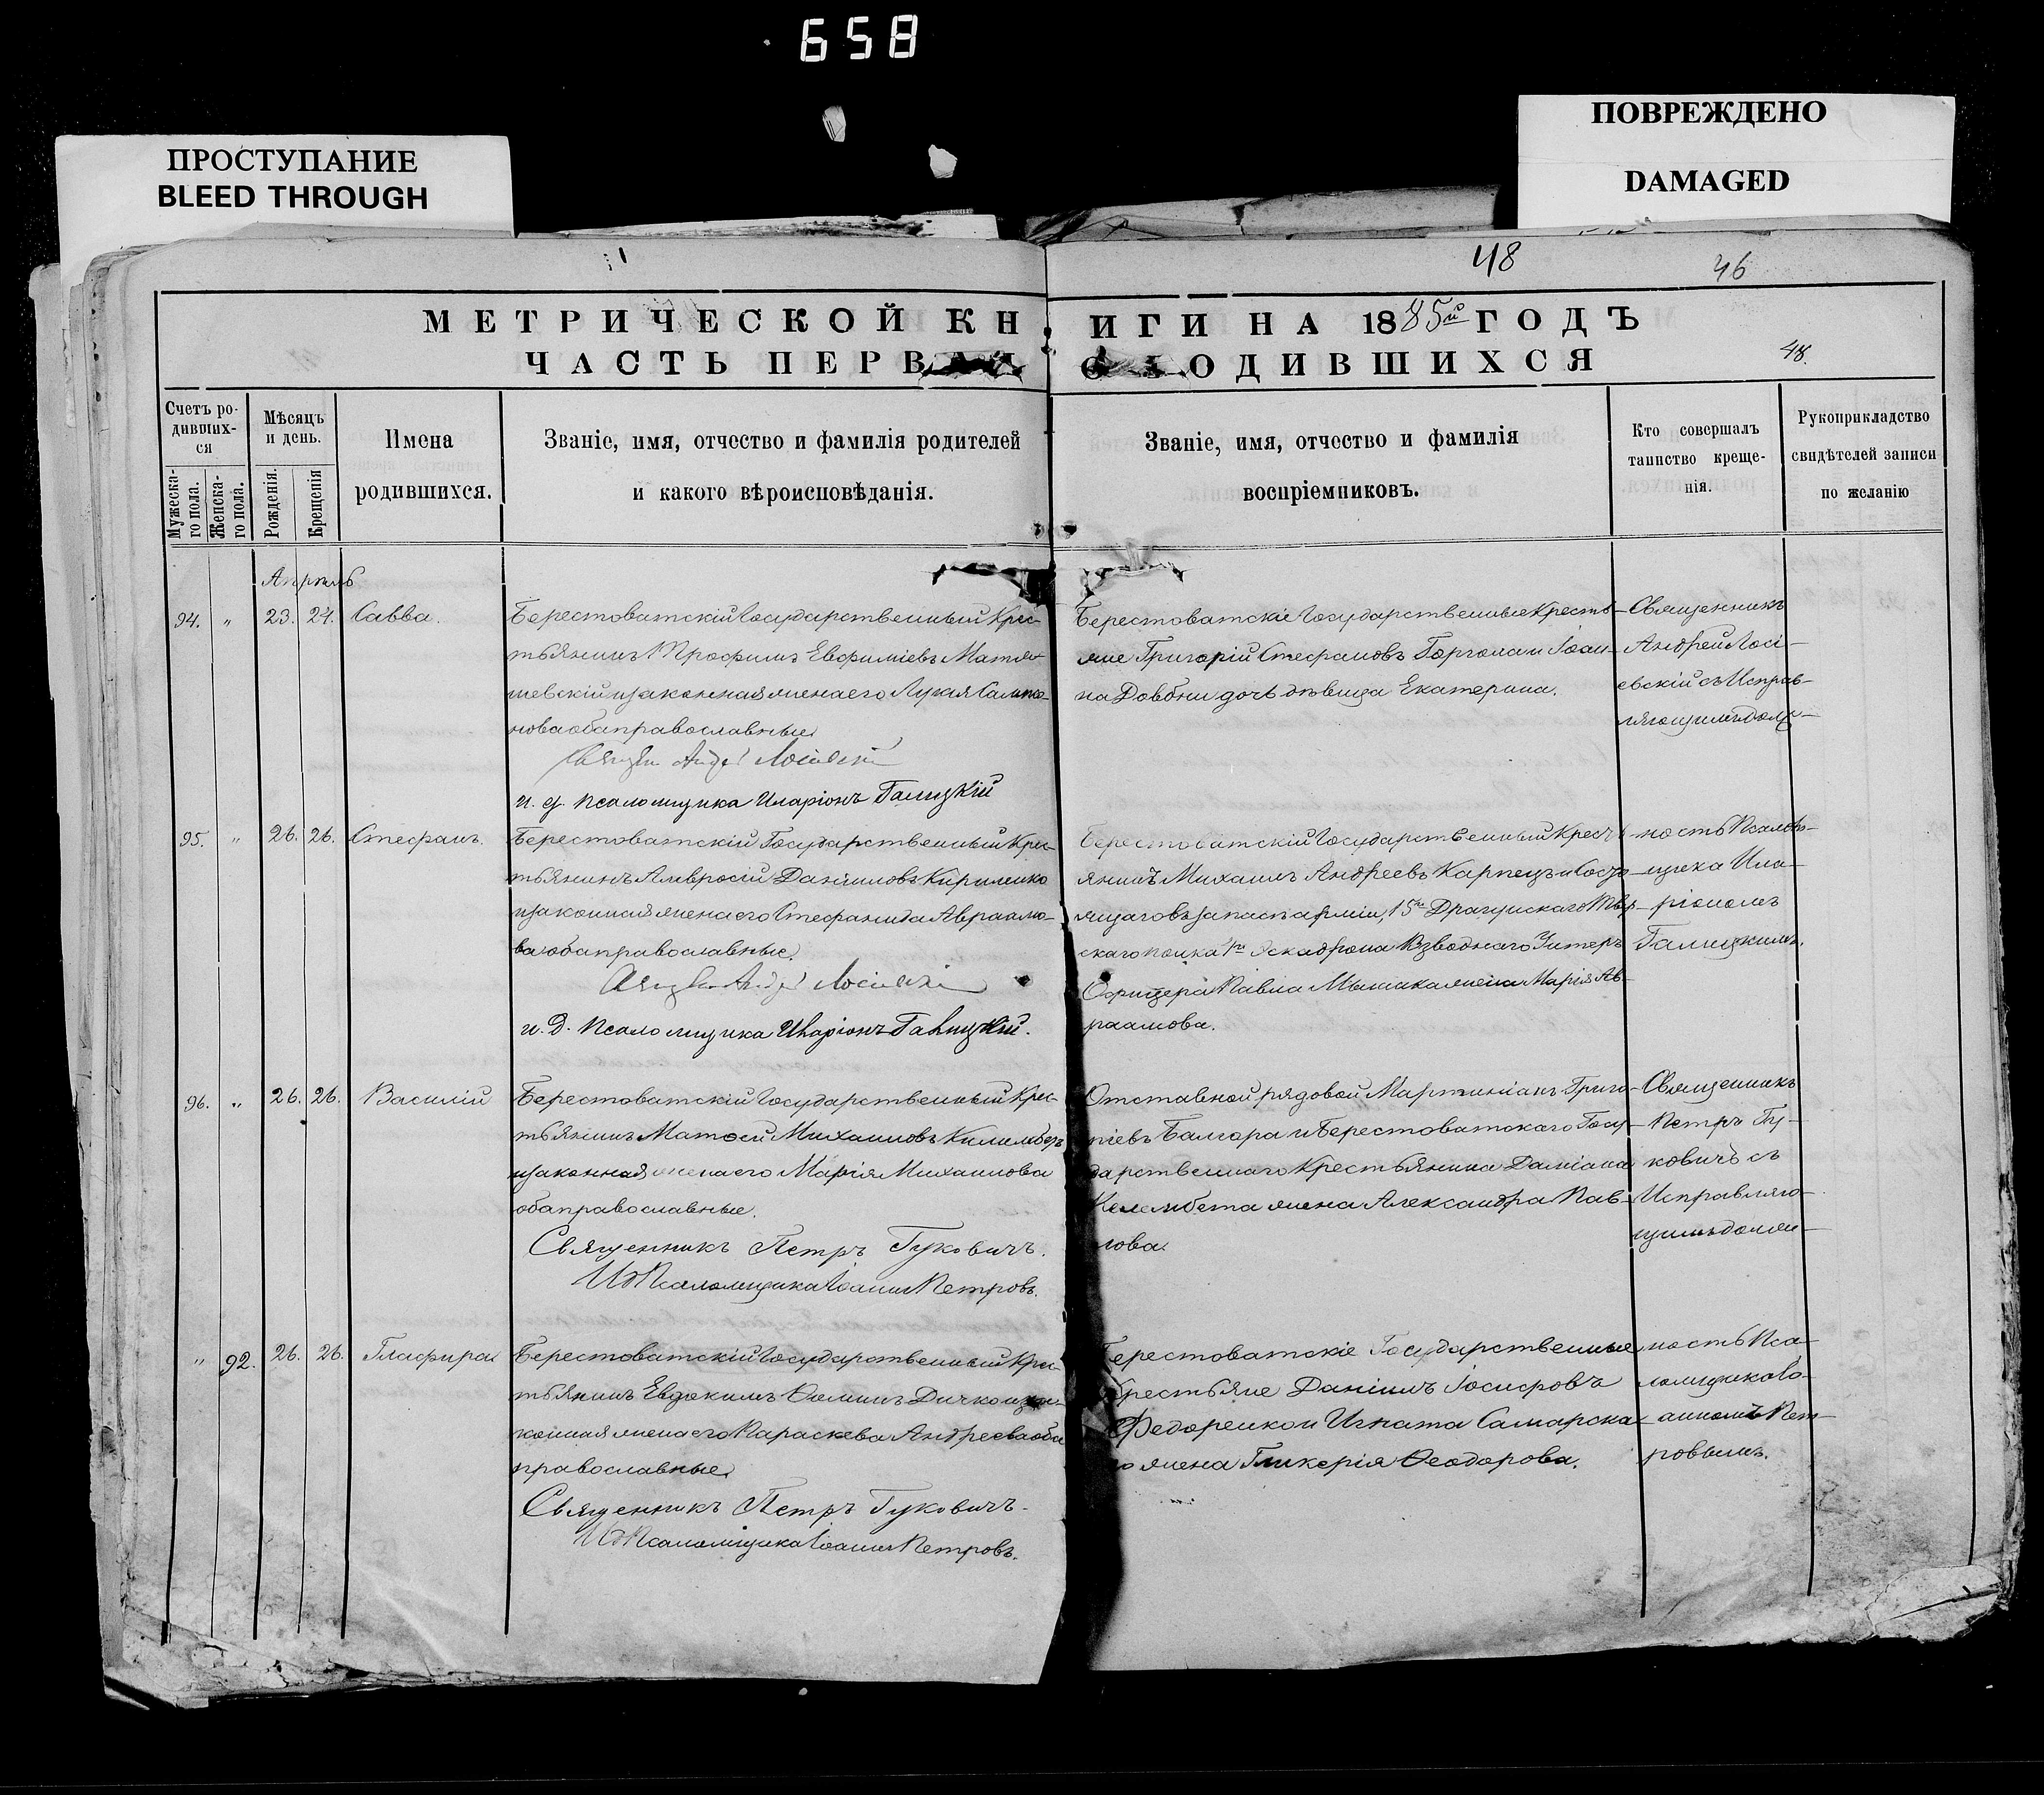 658
ПРОСТУПАНИЕ
BLEED THROUGH
ПОВРЕЖДЕНО
DAMAGED
48
46
МЕТРИЧЕСКОЙ КНИГИ НА 1885й ГОДЪ
ЧАСТЬ ПЕРВАЯ О РОДИВШИХСЯ
48.
Счетъ ро-
дивших-
ся
Мужеска-
го пола.
Женска-
го пола.
Мѣсяцъ
и день.
Рожденія.
Крещенія
Имена
родившихся.
Званіе, имя, отчество и фамилія родителей
и какого вѣроисповѣданія.
Званіе, имя, отчество и фамилія
воспріемниковъ.
Кто совершалъ
таинство креще-
нія.
Рукоприкладство
свидѣтелей записи
по желанію
Апрѣль
94. " 23. 24. Савва.
Берестоватскій Государственный Крес-
тьянинъ Трофимъ Евфиміевъ
шевскій и законная жена его
нова оба православные.
Андрей Лосіевскій
и. д. псаломщика Иларіонъ Галицкій
Берестоватскіе Государственные Кресть-
яне Григорій Стефановъ Іоан-
на Довбни дочь дѣвица Екатерина.
Священникъ
Андрей Лосі-
евскій съ Исправ-
ляющимъ долж-
95. " 26. 26. Стефанъ.
Берестоватскій Государственный Крес-
тьянинъ Амвросій Даніиловъ Кириленко
и законная жена его Стефанида Авраамо-
ва оба православные.
Андрей Лосіевскій
и. д. псаломщика Иларіонъ Галицкій.
Берестоватскій Государственный Кресть-
янинъ Михаилъ Андреевъ Карпецъ и Состо-
ящаго въ запасѣ арміи, 15го Драгунскаго Твер-
скаго полка 1го Эскадрона Взводнаго Унтеръ
Офицера Павла жена Марія Ав-
раамова.
ность Псалом-
щика Ила-
ріономъ
Галицкимъ.
96. " 26. 26. Василій
Берестоватскій Государственный Крес-
тьянинъ Матѳей Михаиловъ Килимбетъ
и законная жена его Марія Михаилова
оба православные.
Священникъ Петръ Гуковичъ.
ИД Псаломщика Іоаннъ Петровъ.
Отставной рядовой Мартиніанъ Григо-
ріевъ Балгора и Берестоватскаго Госу-
дарственнаго Крестьянина Даміана
Келембета жена Александра Пав-
лова.
Священникъ
Петръ Гу-
ковичъ съ
Исправляю-
щимъ долж-
" 92. 26. 26. Гласфира
Берестоватскій Государственный Крес-
тьянинъ Евдокимъ Ѳоминъ Дичко и за-
конная жена его Параскева Андреева оба
православные.
Священникъ Петръ Гуковичъ.
ИД Псаломщика Іоаннъ Петровъ.
Берестоватскіе Государственные
Крестьяне Даніилъ Іосифовъ
Федоренко и Игната Самарска-
го жена Гликерія Ѳеодорова.
ность Пса-
ломщика Іо-
анномъ Пет-
ровымъ.